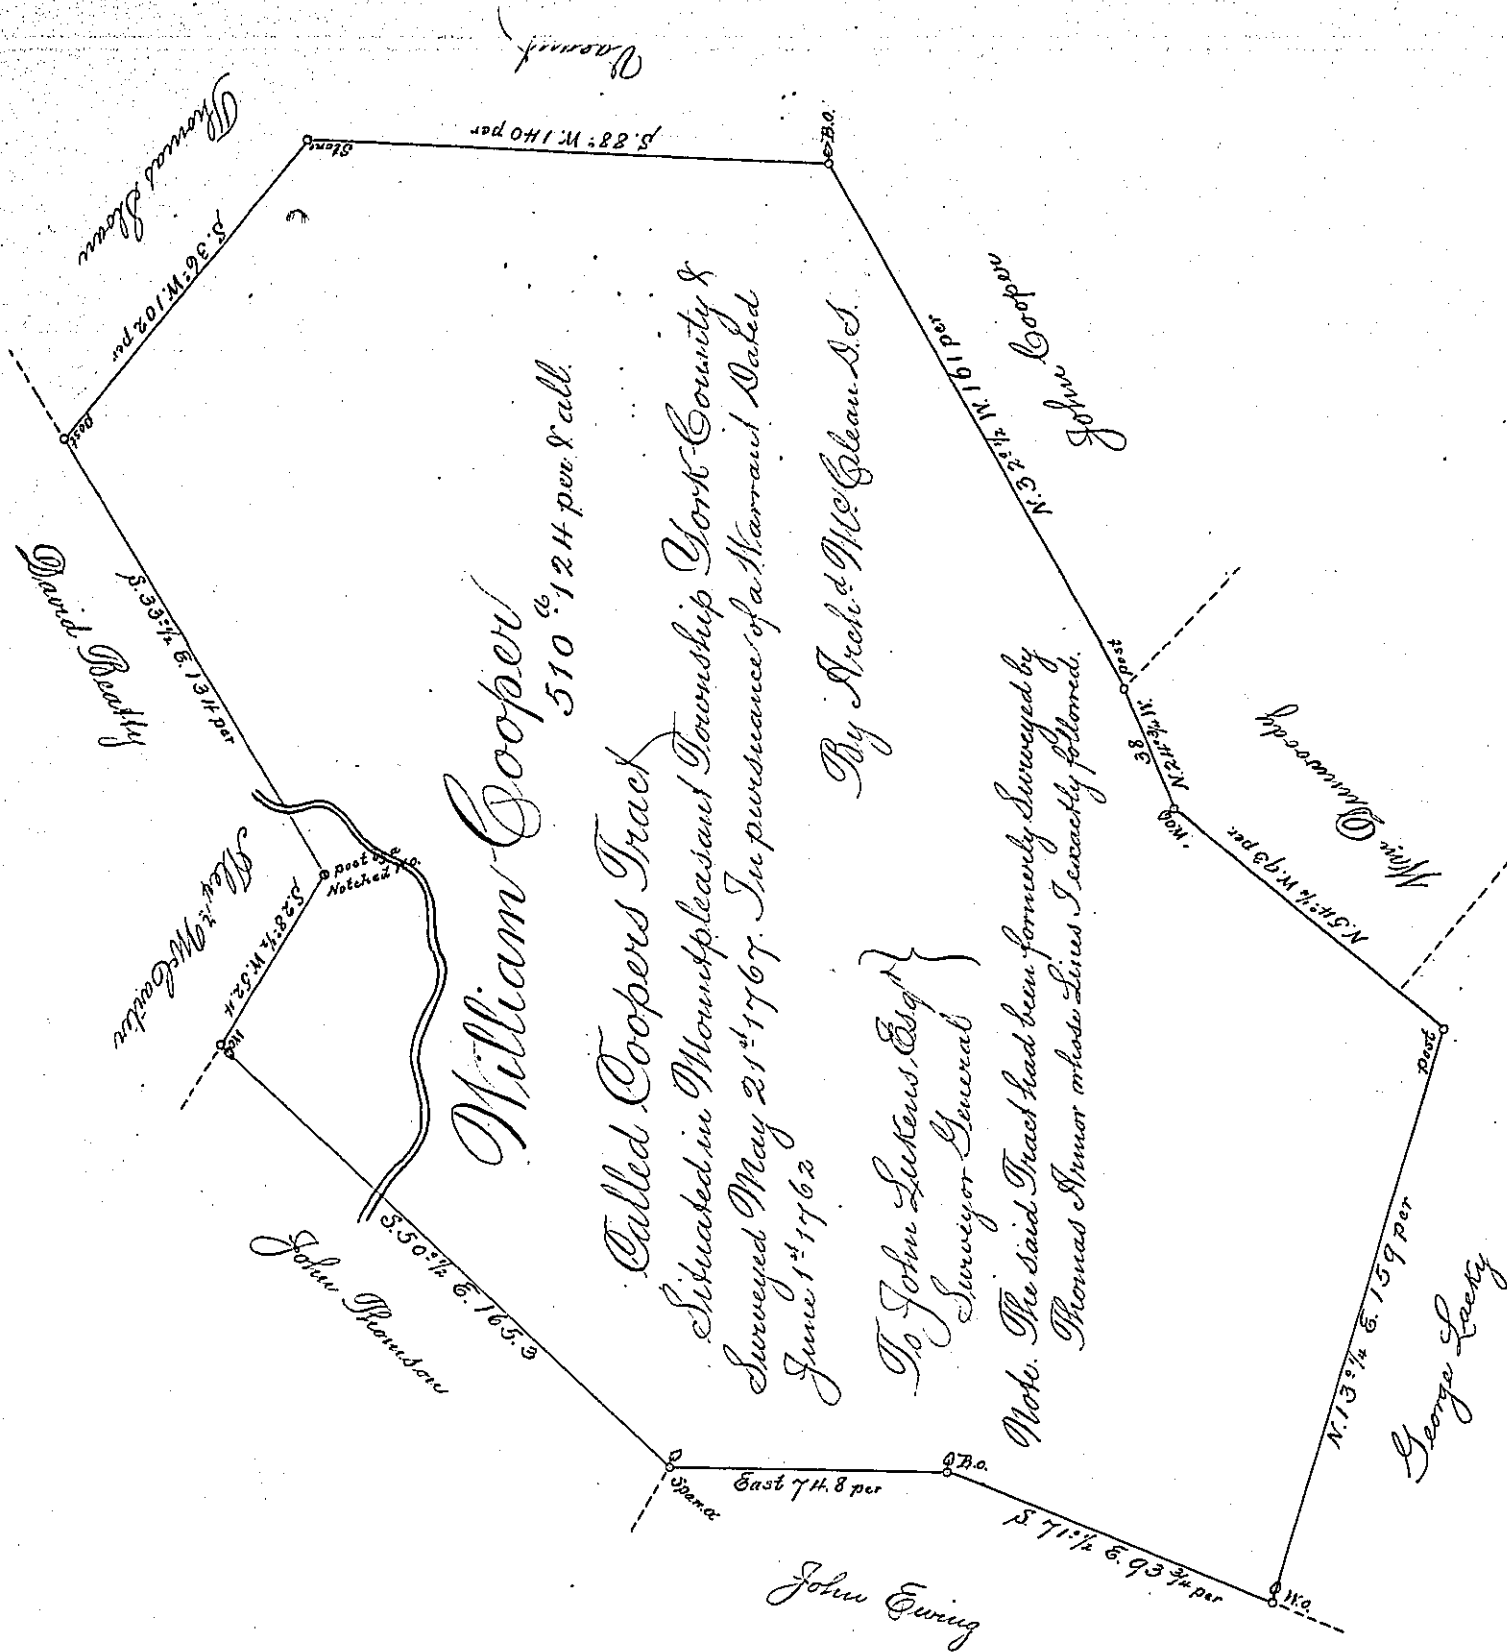 William Cooper
510 a 124 per & all.
Called Coopers Tract
Situated in Mountpleasant Township York County &
Surveyed May 21st 1767. In pursuance of a Warrant Dated
June 1st 1762
By Archd McClean D.S.
To John Lukens, Esqr
Surveyor General
Note. The said Tract had been formerly Surveyed by
Thomas Armor whose Lines I exactly followed.
Vacant
S. 88° W. 140 per
Stone
Thomas Sloan
S. 36° W. 102 per
Post
David Beatty
S. 33° 1/2 E. 134 per
post by a
Notched W.O.
Alexr McCarter
S. 28° 1/2 W. 52.4
W.O.
John Thomson
S. 50° 1/2 E. 165.3
Span. o
East 74.8 per
B.O.
John Ewing
S. 71° 1/2 E. 93 3/4 per
W.O.
N. 13° 1/4 E. 159 per
George Lacky
Post
N. 54° 1/4 W. 93 per.
Wm Dunwoody
W.O.
38
N. 24° 3/4 W.
post
N. 32° 1/2 W. 161 per
John Cooper
B.O.